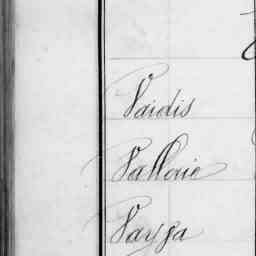 Vaidis
Vallorie
Varga